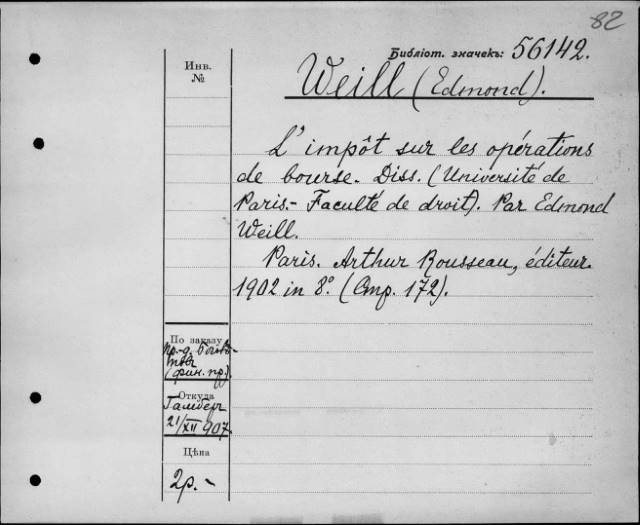 82
Библіот. значекъ: 56142.
Инв.
№
Weill (Edmond).
L'impôt sur les opérations
de bourse. Diss. (Université de
Paris.- Faculté de droit). Par Edmond
Weill.
Paris. Arthur Rousseau, éditeur.
1902 in 8º. (Стр. 172).
По заказу
пр-д.
(фин. пр.).
Откуда
Гамберг
21/XII 907.
Цѣна
2р.-